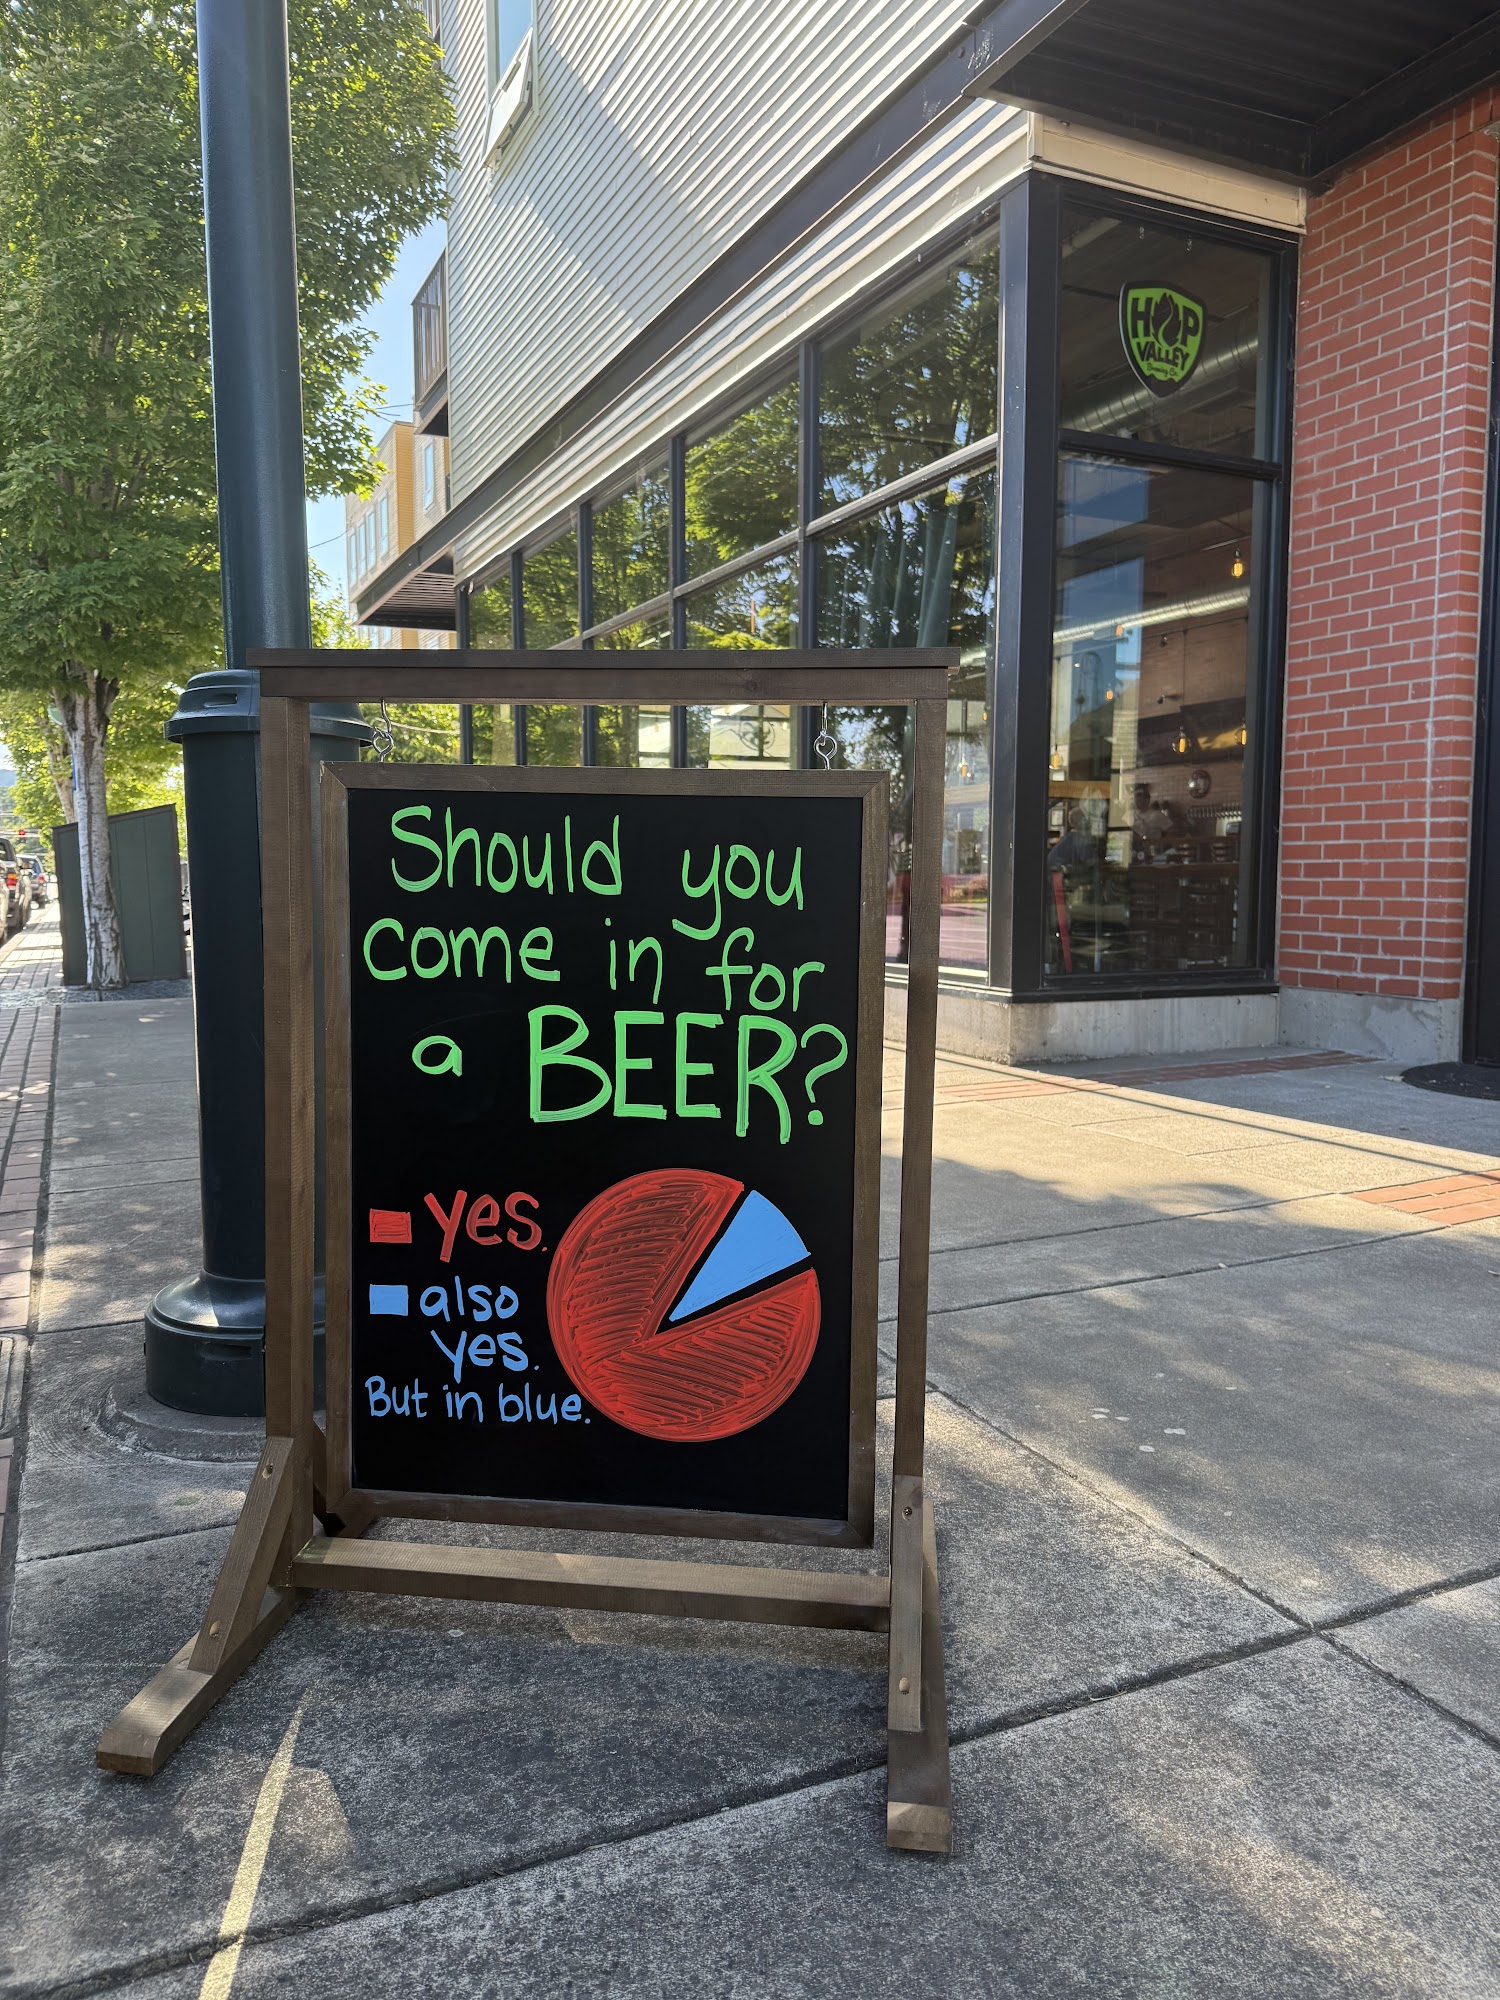 HOP
VALLEY
Brewing Co.
Should you
come in for
a BEER?
yes.
also
yes.
But in blue.